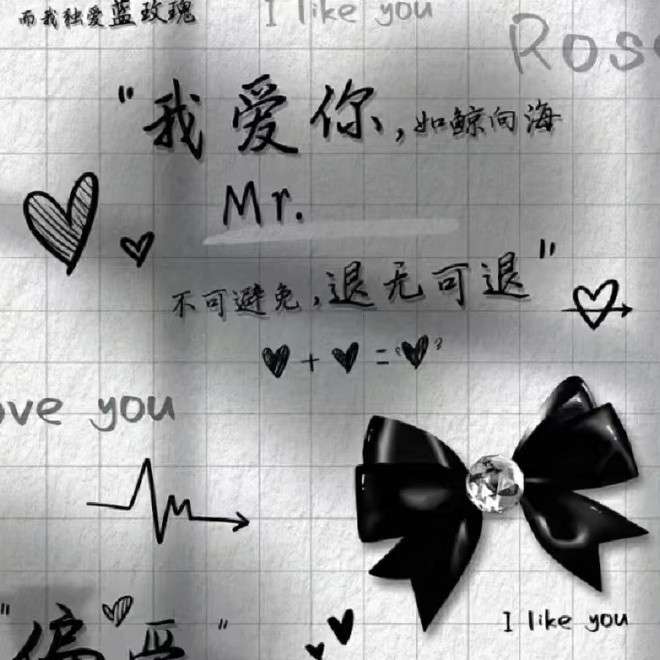 而我独爱蓝玫瑰
I like you
Ros
"我爱你,如鲸向海
Mr.
不可避免,退无可退"
+ = ?
ove you
I like you
"偏爱"